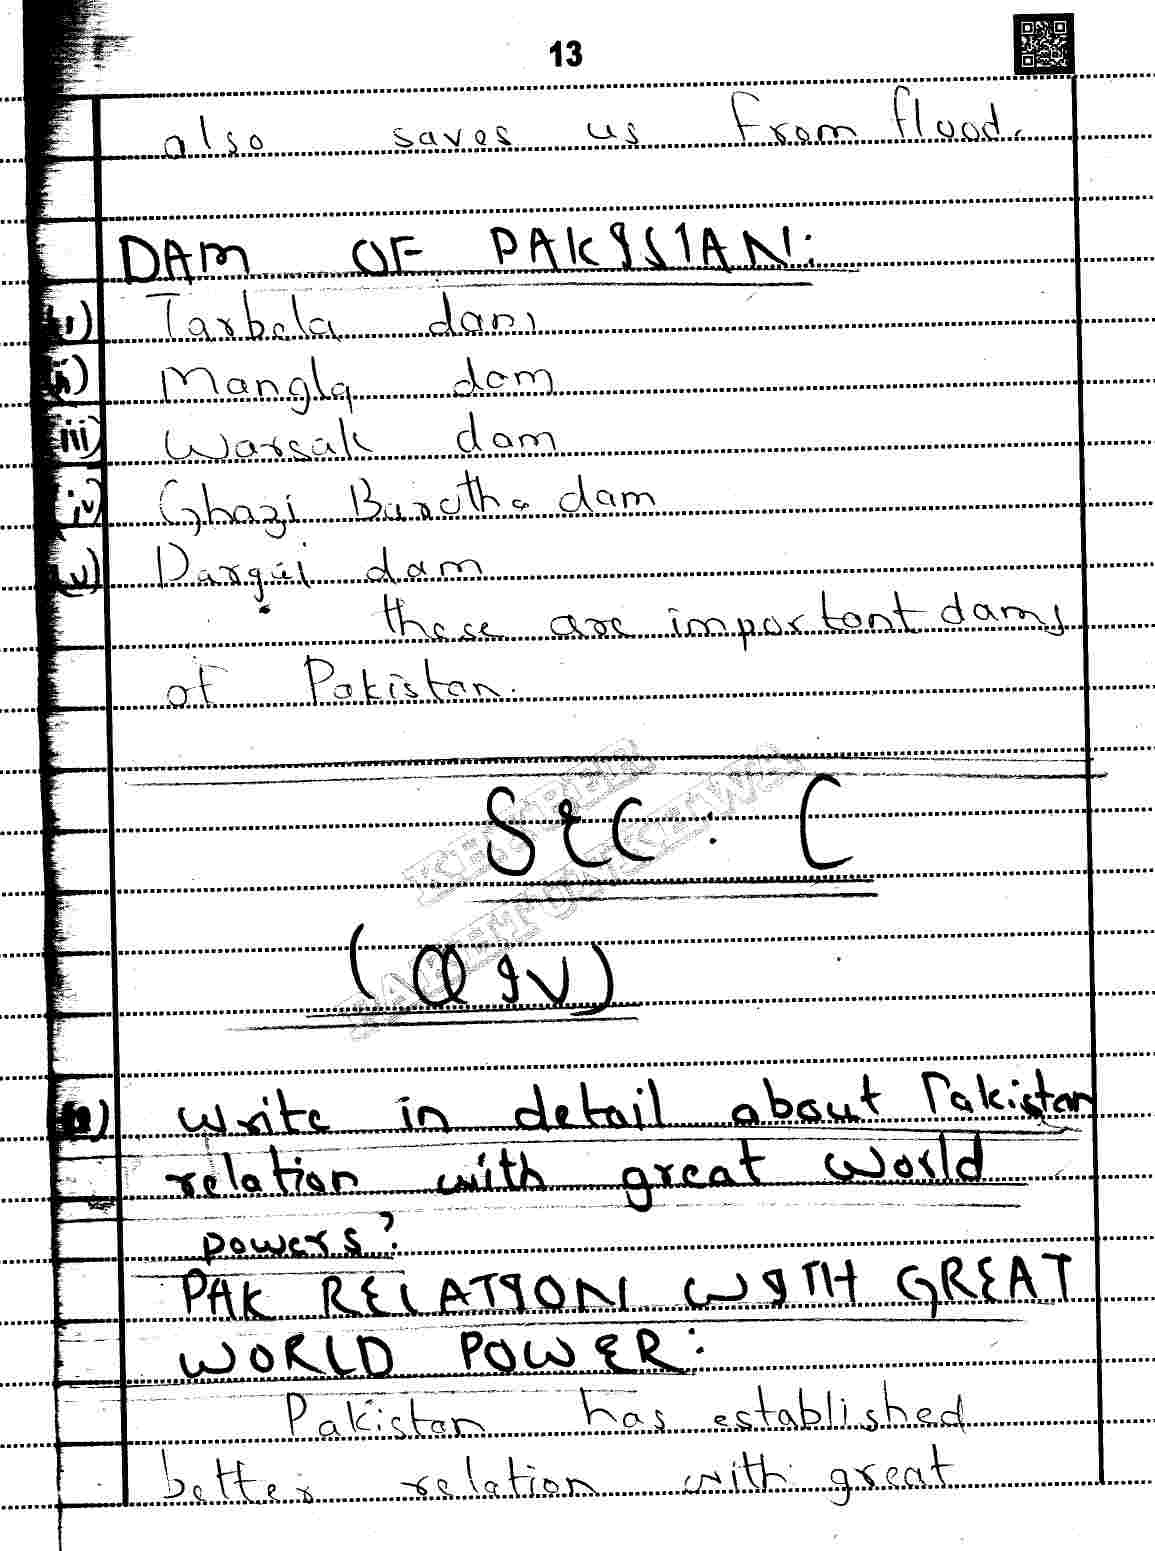 13
also saves us from flood.
DAM OF PAKISTAN:
i) Tarbela dam
ii) Mangla dam
iii) Warsak dam
iv) Ghazi Barotha dam
v) Dargai dam
these are important dams
of Pakistan.
KHYBER
PAKHTUNKHWA
SEC: C
(Q IV)
write in detail about Pakistan
relation with great world
powers?
PAK RELATION WITH GREAT
WORLD POWER:
Pakistan has established
better relation with great